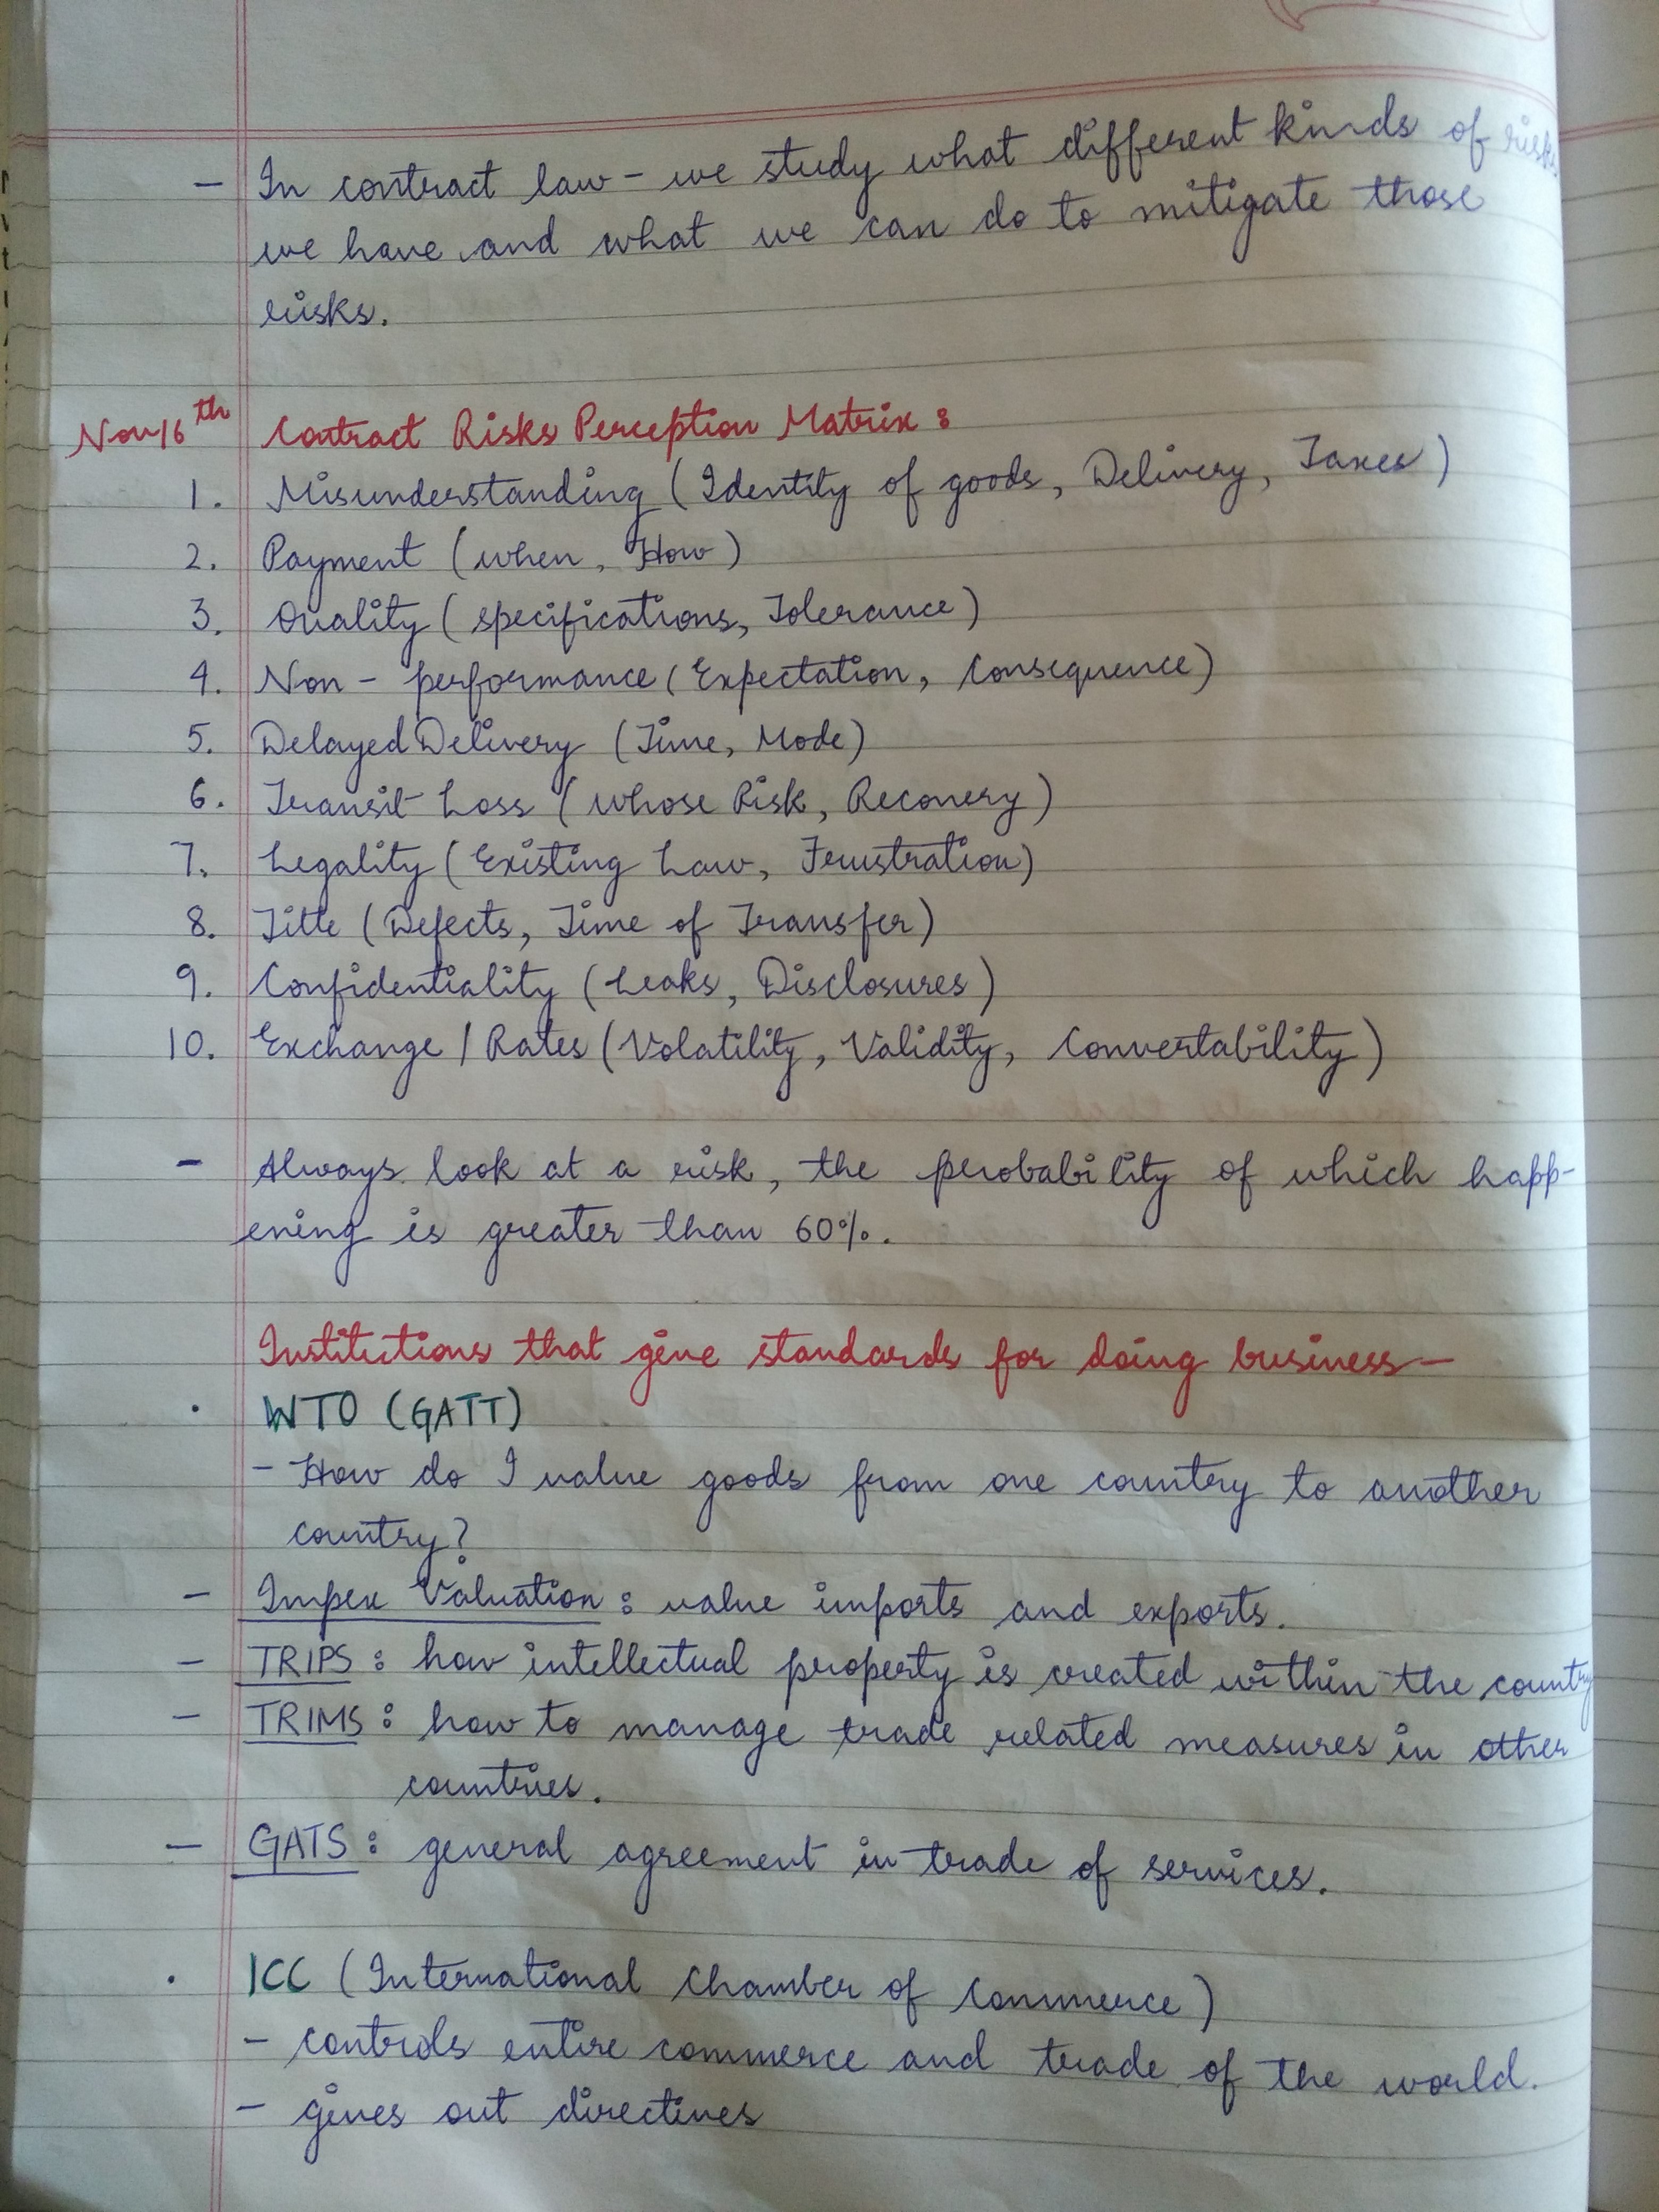 - In contract law - we study what different kinds of risks
we have and what we can do to mitigate those
risks.
Nov 16th Contract Risks Perception Matrix :
1. Misunderstanding (Identity of goods, Delivery, Taxes)
2. Payment (when, How)
3. Quality (specifications, Tolerance)
4. Non - performance (Expectation, Consequence)
5. Delayed Delivery (Time, Mode)
6. Transit Loss (whose Risk, Recovery)
7. Legality (Existing Law, Frustration)
8. Title (Defects, Time of Transfer)
9. Confidentiality (Leaks, Disclosures)
10. Exchange / Rates (Volatility, Validity, Convertability)
- Always look at a risk, the probability of which happ-
ening is greater than 60%.
Institutions that give standards for doing business -
· WTO (GATT)
- How do I value goods from one country to another
country?
- Impex Valuation : value imports and exports.
- TRIPS : how intellectual property is created within the country
- TRIMS : how to manage trade related measures in other
countries.
- GATS : general agreement in trade of services.
· ICC (International Chamber of Commerce)
- controls entire commerce and trade of the world.
- gives out directives